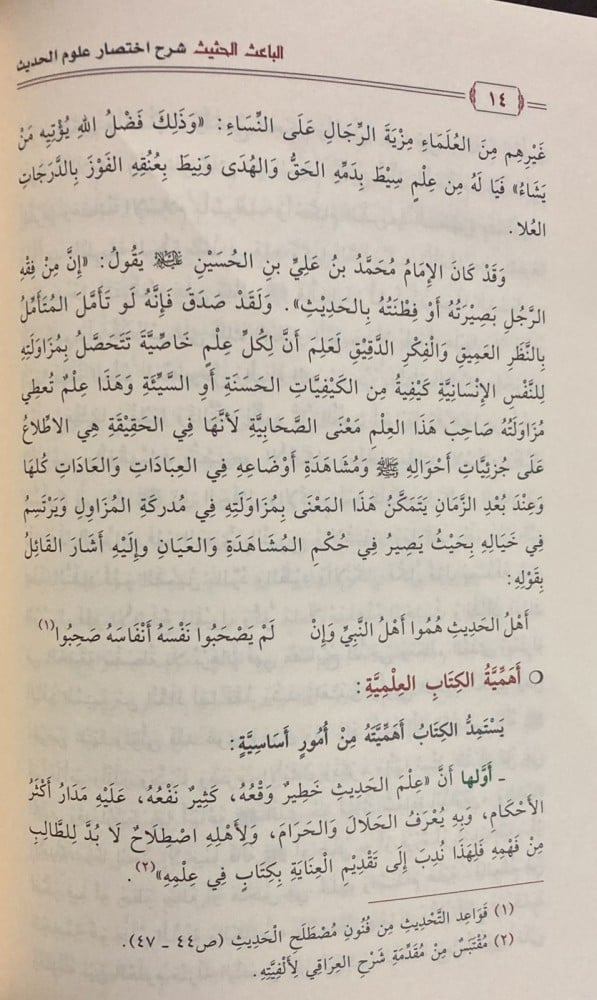 الباعث الحثيث شرح اختصار علوم الحديث
١٤
غَيْرِهِم مِنَ العُلَمَاءِ مِزْيَةَ الرِّجَالِ عَلَى النِّسَاءِ: «وَذَلِكَ فَضْلُ اللهِ يُؤْتِيهِ مَنْ
يَشَاءُ» فَيَا لَهُ مِن عِلْمٍ سِيْطَ بِدَمِّهِ الحَقُّ وَالهُدَى وَنِيطَ بِعُنُقِهِ الفَوْزَ بِالدَّرَجَاتِ
العُلا.
وَقَدْ كَانَ الإِمَامُ مُحَمَّدُ بنُ عَلِيِّ بنِ الحُسَيْنِ عليه السلام يَقُولُ: «إِنَّ مِنْ فِقْهِ
الرَّجُلِ بَصِيْرَتُهُ أَوْ فِطْنَتُهُ بِالحَدِيْثِ». وَلَقَدْ صَدَقَ فَإِنَّهُ لَو تَأَمَّلَ المُتَأَمِّلُ
بِالنَّظَرِ العَمِيقِ وَالْفِكْرِ الدَّقِيْقِ لَعَلِمَ أَنَّ لِكُلِّ عِلْمٍ خَاصِّيَّةً تَتَحَصَّلُ بِمُزَاوَلَتِهِ
لِلنَّفْسِ الإِنْسَانِيَّةِ كَيْفِيةُ مِن الكَيْفِيَّاتِ الحَسَنَةِ أَوِ السَّيِّئَةِ وَهَذَا عِلْمٌ تُعطِي
مُزَاوَلَتُهُ صَاحِبَ هَذَا العِلْمِ مَعْنَى الصَّحَابِيَّةِ لأَنَّهَا فِي الحَقِيْقَةِ هِي الاطِّلاعُ
عَلَى جُزئِيَّاتِ أَحْوَالِهِ ﷺ وَمُشَاهَدَةِ أَوْضَاعِهِ فِي العِبَادَاتِ وَالعَادَاتِ كُلهَا
وَعِنْدَ بُعْدِ الزَّمَانِ يَتَمَكَّنُ هَذَا المَعْنَى بِمُزَاوَلَتِهِ فِي مُدركَةِ المُزَاوِلِ وَيَرْتَسِمُ
فِي خَيَالِهِ بِحَيْثُ يَصِيرُ فِي حُكْمِ المُشَاهَدَةِ وَالعَيَانِ وإِلَيْهِ أَشَارَ القَائِلُ
بِقَوْلِهِ:
أَهْلُ الحَدِيْثِ هُمُوا أَهْلُ النَّبِيِّ وَإِنْ لَمْ يَصْحَبُوا نَفْسَهُ أَنْفَاسَهُ صَحِبُوا(١)
أَهَمِّيَّةُ الكِتَابِ العِلْمِيَّةِ:
يَسْتَمِدُّ الكِتَابُ أَهَمِّيَّتَهُ مِنْ أُمُورٍ أَسَاسِيَّةٍ:
ـ أَوَّلها أَنَّ «عِلْمَ الحَدِيثِ خَطِيرٌ وَقْعُهُ، كَثِيرٌ نَفْعُهُ، عَلَيْهِ مَدَارُ أَكْثَرُ
الأَحْكَامِ، وَبِهِ يُعْرَفُ الحَلَالَ وَالحَرَامَ، وَلِأَهْلِهِ اصْطِلَاحٌ لَا بُدَّ لِلطَّالِبِ
مِنْ فَهْمِهِ فَلِهَذَا نُدِبَ إِلَى تَقْدِيْمِ العِنَايَةِ بِكِتَابٍ فِي عِلْمِهِ»(٢).
(١) قَوَاعِد التَّحْدِيْثِ مِن فُنُونِ مُصْطَلَحِ الْحَدِيْثِ (ص٤٤ ـ ٤٧).
(٢) مُقْتَبَسٌ مِنْ مُقَدِّمَةِ شَرْحِ العِرَاقِي لِأَلْفِيَّتِهِ.